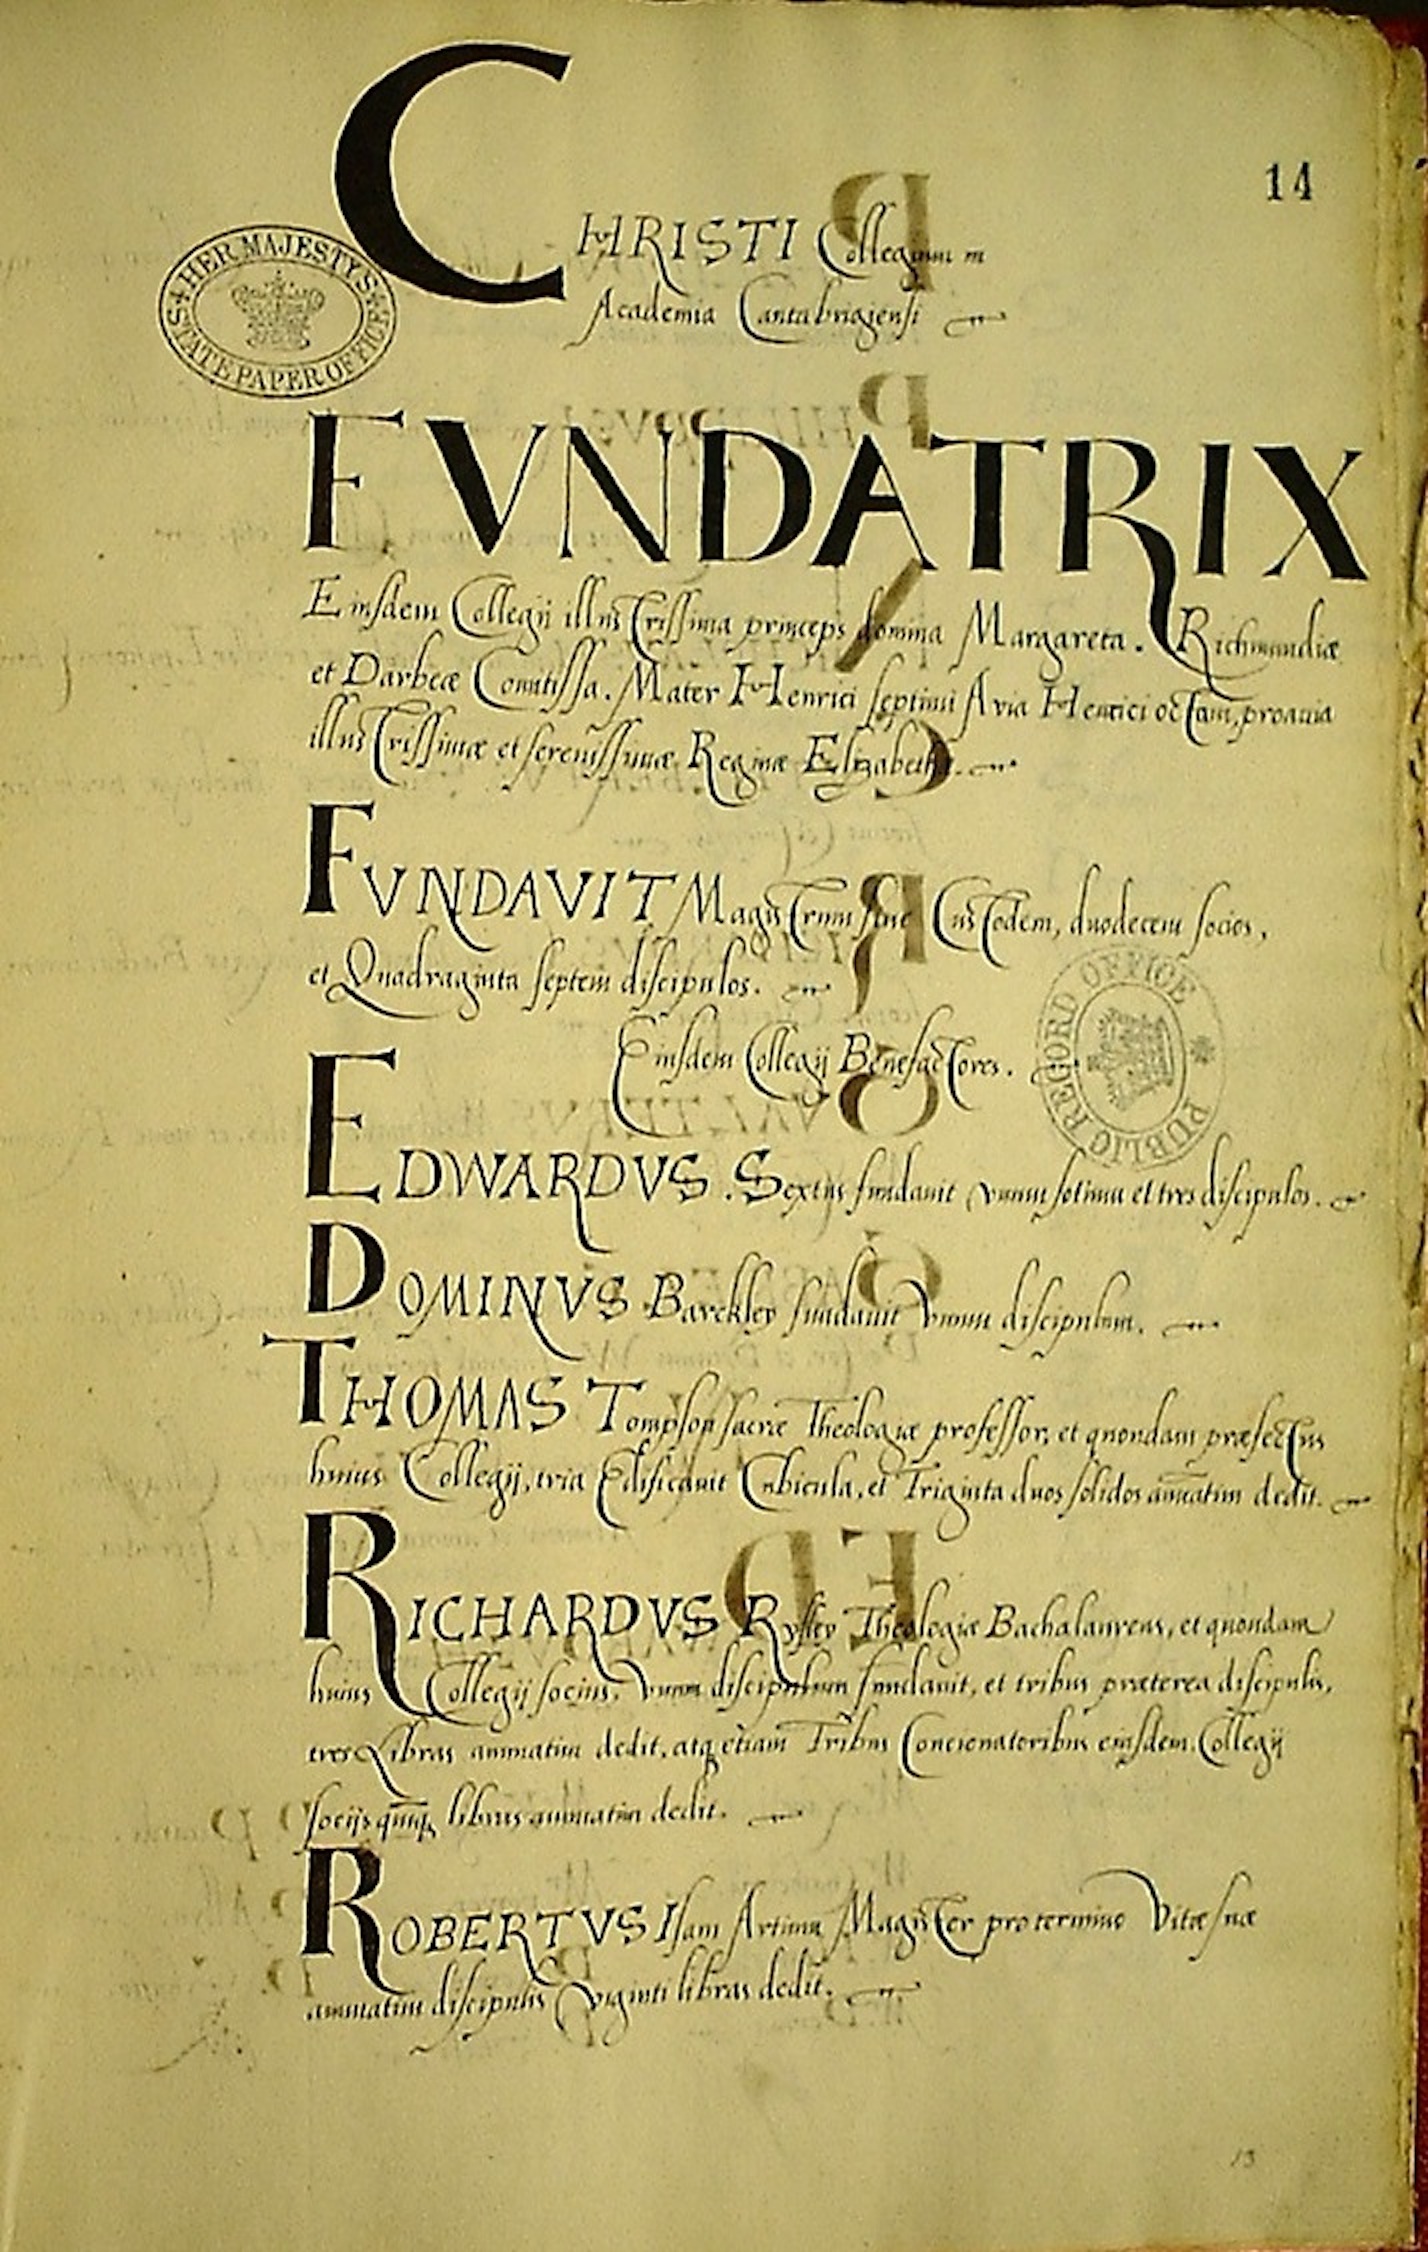 14
CHRISTI Collegium in
Academia Cantabrigiensi
HER MAJESTY'S
STATE PAPER OFFICE
FVNDATRIX
Eiusdem Collegij illustrissima princeps domina Margareta. Richmundiæ
et Darbeæ Comitissa. Mater Henrici septimi Avia Henrici octavi, proavia
illustrissimæ et serenissimæ Reginæ Elizabethæ.
FVNDAVIT Magistrum sive Custodem, duodecem socios,
et Quadraginta septem discipulos.
Eiusdem Collegij Benefactores.
PUBLIC RECORD OFFICE
EDWARDVS. Sextus fundauit vnum sotium et tres discipulos.
DOMINVS Barckley fundauit vnum discipulum.
THOMAS Tompson sacræ Theologiæ professor, et quondam præfectus
huius Collegij, tria Edificauit Cubicula, et Triginta duos solidos añuatim dedit.
RICHARDVS Rysley Theologiæ Bachalaureus, et quondam
huius Collegij socius, vnum discipulum fundauit, et tribus præterea discipulis,
tres Libras annuatim dedit, atq etiam Tribus Concionatoribus eiusdem Collegij
socijs quinq libras annuatim dedit.
ROBERTVS Isam Artium Magister pro termino Vitæ suæ
annuatim discipulis viginti libras dedit.
13